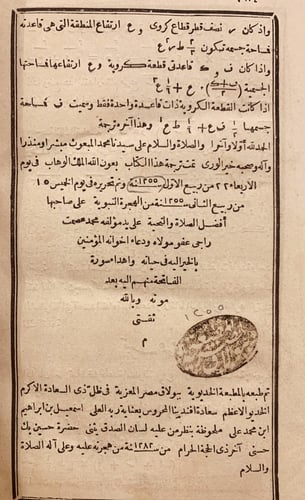 واذا كان ر نصف قطر قطاع كروى و ع ارتفاع المنطقة التى هى قاعدته
فساحة جسمه تكون ٢/٣ ط ر٢ ع
واذا كان ف و ك قاعدتى قطعة كروية و ع ارتفاعها فساحتها
الجسمية (ف+ك/٢) . ع + ١/٦ ط ع٣
اذا كانت القطعة الكروية ذات قاعدة واحدة فقط وسميت ف فساحة
جسمها ١/٢ ف ع + ١/٦ ط ع٣ وهذا آخر ترجمة
الحمد لله أولا وآخرا والصلاة والسلام على سيدنا محمد المبعوث مبشرا ومنذرا
وآله وصحبه خير الورى تمت ترجمة هذا الكتاب بعون الله الملك الوهاب فى يوم
الاربعاء ٢٢ من ربيع الاول سنة ١٢٥٥ وتم تحريره فى يوم الخميس ١٥
من ربيع الثانى سنة ١٢٥٥ من الهجرة النبوية على صاحبها
أفضل الصلاة والتحية على يد مؤلفه محمد عصمت
راجى عفو مولاه ودعاء اخوانه المؤمنين
بالخير اليه فى حياته واهداء سورة
الفاتحة منهم اليه بعد
موته وبالله
ثقتى
م
١٢٥٥
تم طبعه بالمطبعة الخديوية ببولاق مصر المعزية فى ظل ذى السعادة الاكرم
الخديو الاعظم سعادة افندينا المحروس بعناية ربه العلى اسمعيل بن ابراهيم
ابن محمد على ملحوظة بنظر من عليه لسان الصدق يثنى حضرة حسين بك
حسنى آخر ذى الحجة الحرام من سنة ١٢٨٢ من هجرته عليه وعلى آله الصلاة
والسلام